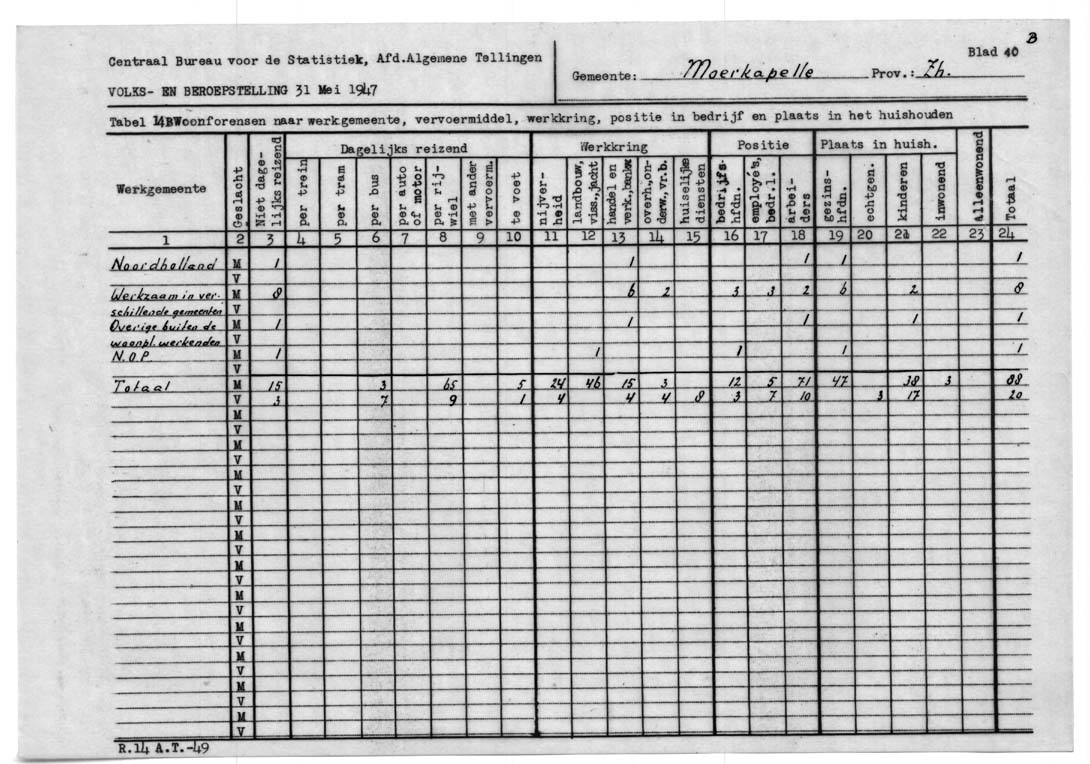 B
Centraal Bureau voor de Statistiek, Afd.Algemene Tellingen
Blad 40
Gemeente: Moerkapelle Prov.: Zh.
VOLKS- EN BEROEPSTELLING 31 Mei 1947
Tabel 14B Woonforensen naar werkgemeente, vervoermiddel, werkkring, positie in bedrijf en plaats in het huishouden
Werkgemeente Geslacht Niet dage-lijks reizend Dagelijks reizend Werkkring Positie Plaats in huish. alleenwonend Totaal
per trein per tram per bus per auto of motor per rij-wiel met ander vervoerm. te voet nijver-heid landbouw, viss.,jacht handel en verk.,bankw. overh.,on-derw.,vr.b. huiselijke diensten bedrijfs-hfdn. employé's, bedr.l. arbei-ders gezins-hfdn. echtgen. kinderen inwonend
1 2 3 4 5 6 7 8 9 10 11 12 13 14 15 16 17 18 19 20 21 22 23 24
Noordholland M 1 1 1 1 1
V
Werkzaam in ver- M 8 6 2 3 3 2 6 2 8
schillende gemeenten V
Overige buiten de M 1 1 1 1 1
woonpl. werkenden V
N.O.P. M 1 1 1 1 1
V
Totaal M 15 3 65 5 24 46 15 3 12 5 71 47 38 3 88
V 3 7 9 1 4 4 4 8 3 7 10 3 17 20
M
V
M
V
M
V
M
V
M
V
M
V
M
V
M
V
M
V
M
V
M
V
R.14 A.T.-49